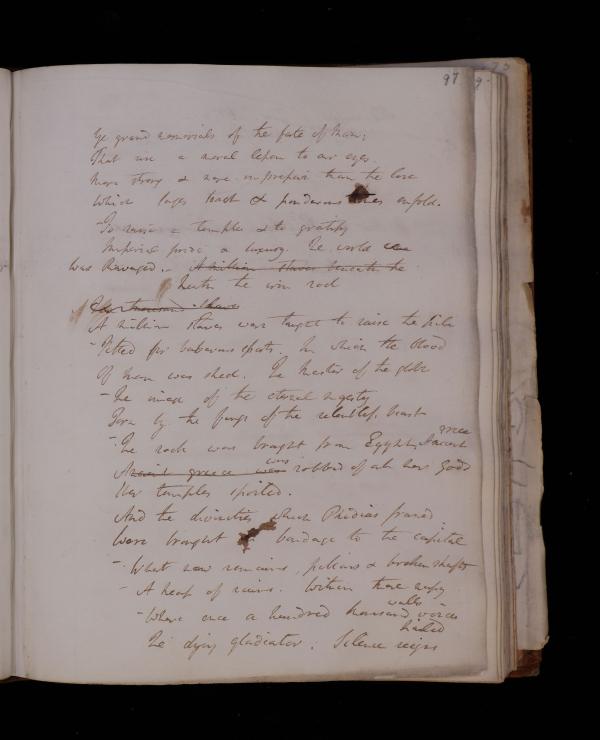 97
Ye grand memorials of the fate of Man;
That are a moral lesson to our eyes.
More strong & more impressive than the lore
Which pages & ponderous enfold.
- To raise a temple & to gratify
Imperial pride & luxury. The world was
was Ravaged. - A million slaves beneath the
Neath the iron rod
thousand slaves
A million slaves were taught to raise the pile
- Fitted for barbarous sports. In which the blood
Of man was shed. The Master of the globe
- The image of the eternal majesty
Torn by the fangs of the relentless beast
- The rock was brought from Egypt, Ancient greece
Ancient greece was was robbed of all her Gods
Her temples spoiled.
And the divinities which Phidias framed
Were brought in bondage to the capital
- What now remains, pillars & broken shafts
- A heap of ruins. Within these walls
- Where once a hundred thousand voices
hailed
The dying gladiator. Silence reigns